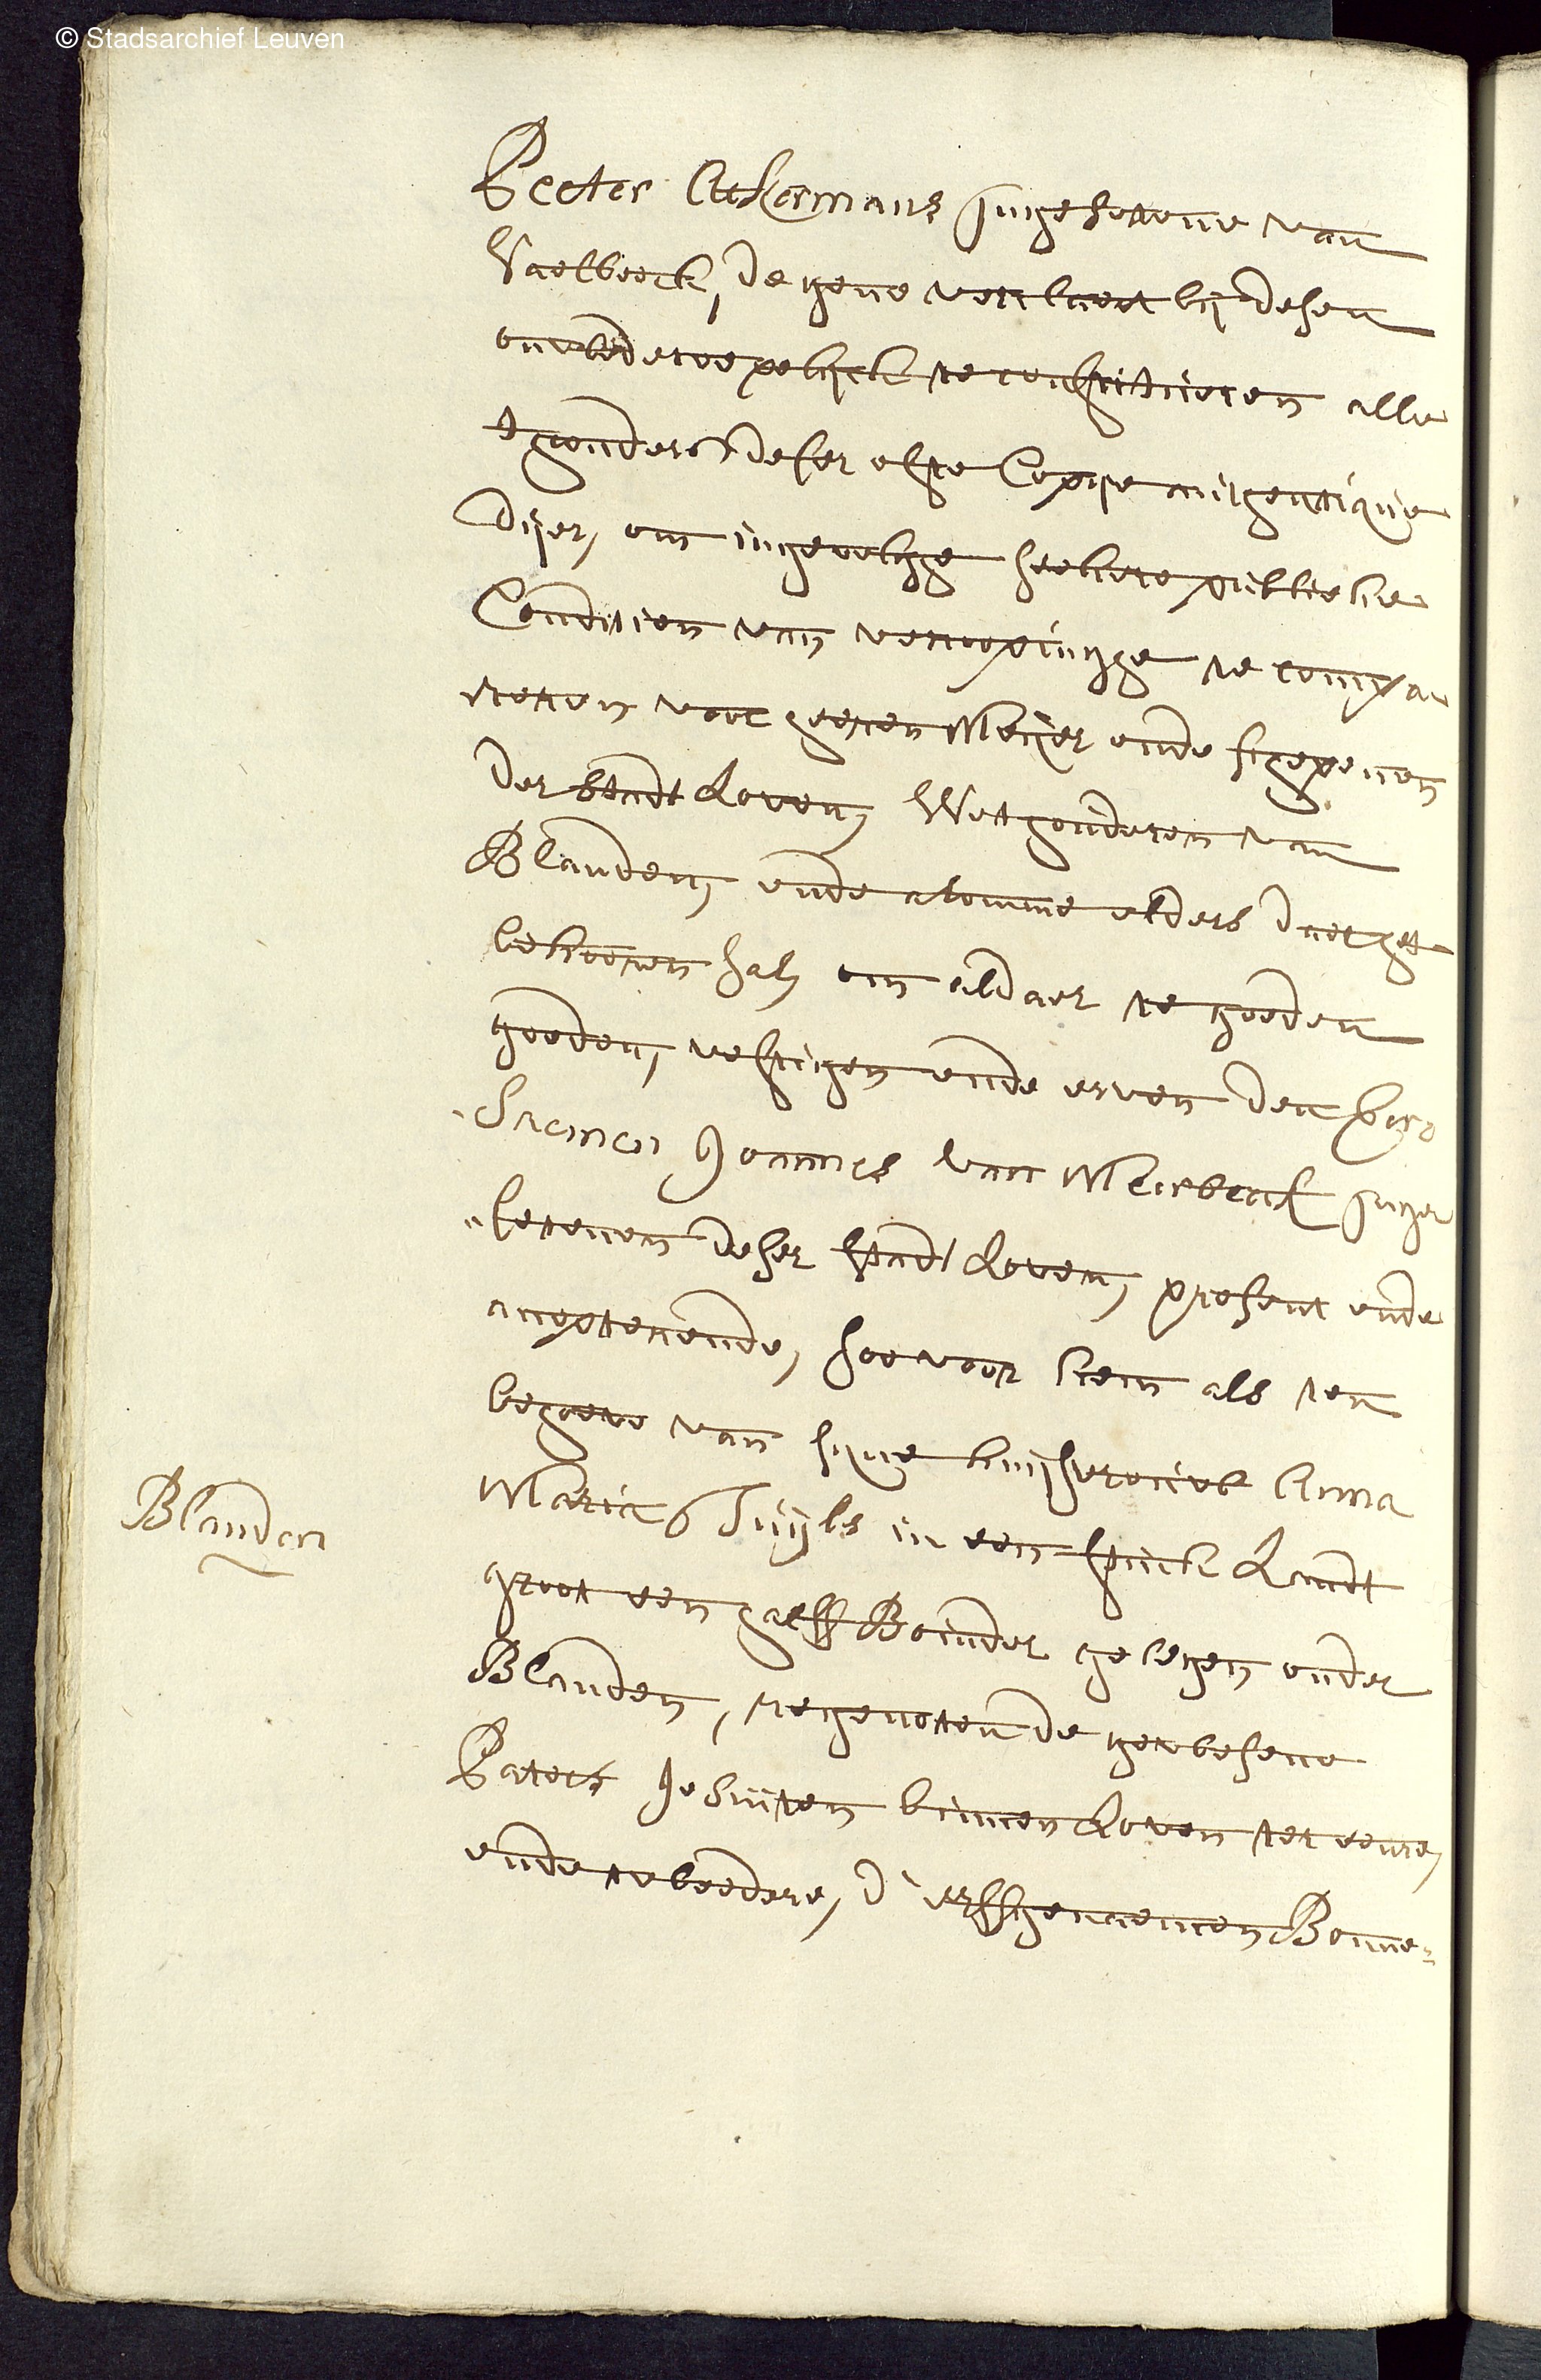 © Stadsarchief Leuven
Peeter Ackermans Ingesetene van
Vaelbeeck, de gene verclaert bij desen
onwederroepelijck te constitueren alle
thoonders deser ofte Copije authentique
dijer, om ingevolghe seekere publieke
Conditien van vercoopinghe te compa-
reren voor heeren Meijer ende schepenen
der stadt Loven, Wethouderen van
Blanden, ende alomme elders daer het
behooren sal, om aldaer te goeden
goeden, vestigen ende erven den
Joannes van Meerbeeck Inge
-setenen deser stadt Loven, present ende
accepterende, soo voor hem als ten
behoeve van sijne huijsvrouwe Anna
Maria Tuijls in een stuck Landt
groot een halff Boinder gelegen onder
Blanden, regenoten de gewesene
Paters Jesuiten binnen Loven ter eenre,
ende tweedere, d'erffgenaemen Bonne-
Blanden